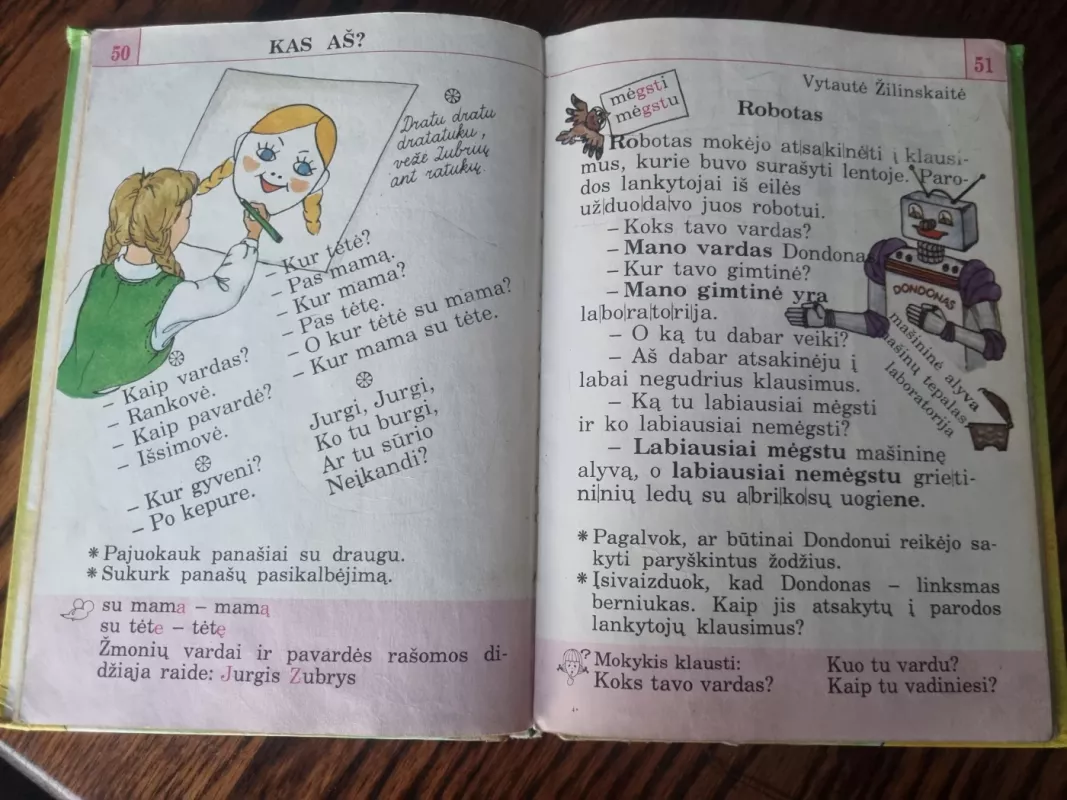 50
KAS AŠ?
Dratu dratu
dratatuku,
veže Zubrių
ant ratukų.
– Kur tėtė?
– Pas mamą.
– Kur mama?
– Pas tėtę.
– O kur tėtė su mama?
– Kur mama su tėte.
– Kaip vardas?
– Rankovė.
– Kaip pavardė?
– Išsimovė.
– Kur gyveni?
– Po kepure.
Jurgi, Jurgi,
Ko tu burgi,
Ar tu sūrio
Neįkandi?
* Pajuokauk panašiai su draugu.
* Sukurk panašų pasikalbėjimą.
su mama – mamą
su tėte – tėtę
Žmonių vardai ir pavardės rašomos di-
džiąja raide: Jurgis Zubrys
51
Vytautė Žilinskaitė
mėgsti
mėgstu
Robotas
Robotas mokėjo at|sa|ki|nė|ti į klausi-
mus, kurie buvo surašyti lentoje. Paro-
dos lankytojai iš eilės
už|duo|da|vo juos robotui.
– Koks tavo vardas?
– Mano vardas Dondona
– Kur tavo gimtinė?
– Mano gimtinė yra
la|bo|ra|to|ri|ja.
– O ką tu dabar veiki?
– Aš dabar atsakinėju į
labai negudrius klausimus.
– Ką tu labiausiai mėgsti
ir ko labiausiai nemėgsti?
– Labiausiai mėgstu mašininę
alyvą, o labiausiai nemėgstu grie|ti-
ni|nių ledų su a|bri|ko|sų uogiene.
DONDONAS
mašininė alyva
mašinų tepalas
laboratorija
* Pagalvok, ar būtinai Dondonui reikėjo sa-
kyti paryškintus žodžius.
* Įsivaizduok, kad Dondonas – linksmas
berniukas. Kaip jis atsakytų į parodos
lankytojų klausimus?
Mokykis klausti: Kuo tu vardu?
Koks tavo vardas? Kaip tu vadiniesi?